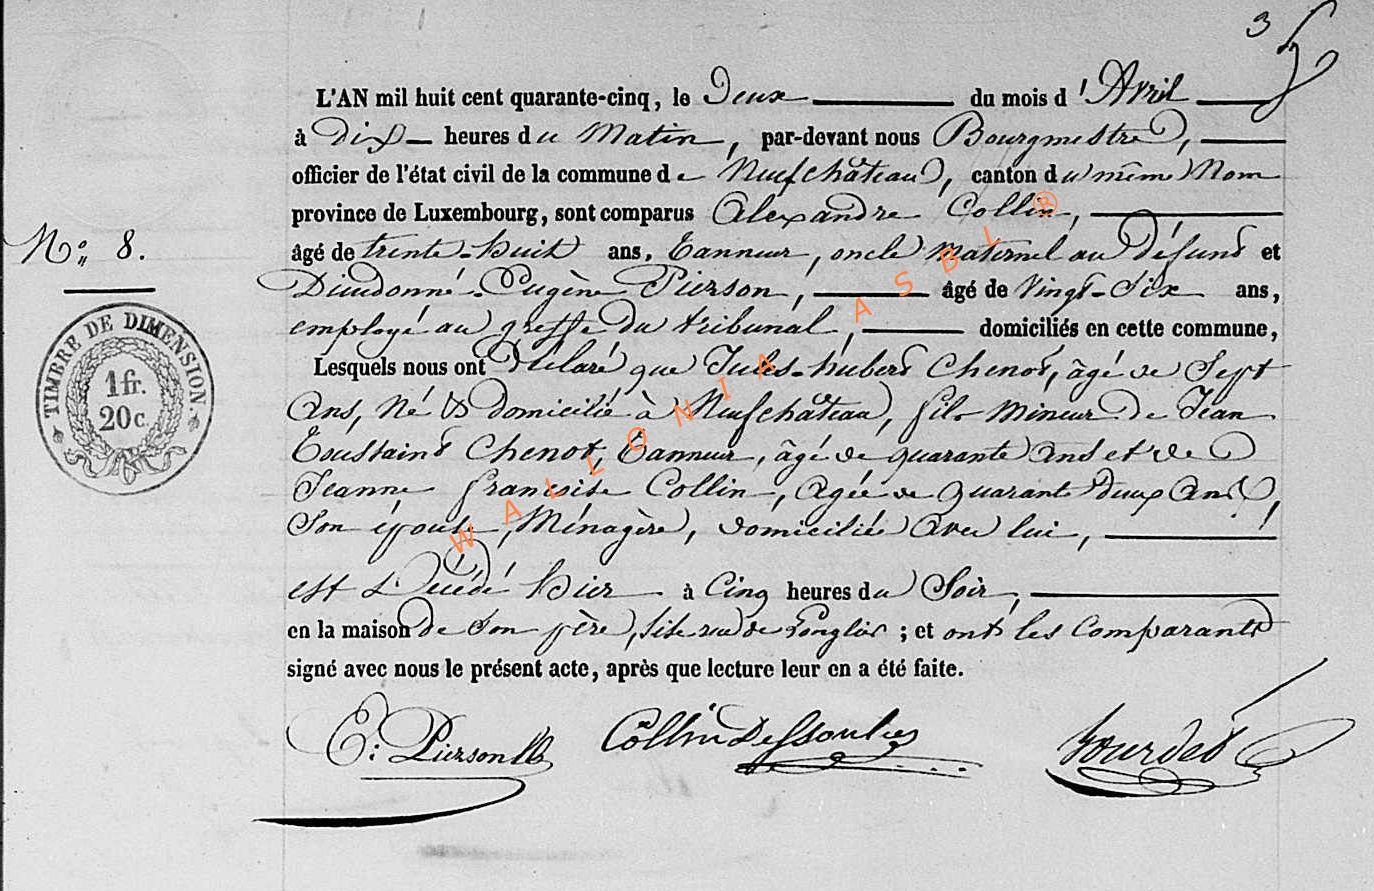 3
L'AN mil huit cent quarante-cinq, le Deux du mois d'Avril
à Dix heures du Matin, par-devant nous Bourgmestre,
officier de l'état civil de la commune de Neufchâteau, canton du même Nom
province de Luxembourg, sont comparus Alexandre Collin,
N° 8.
âgé de trente-huit ans, Tanneur, oncle Maternel au Défunt et
Dieudonné-Eugène Pierson, âgé de Vingt-Six ans,
employé au greffe du tribunal, domiciliés en cette commune,
Lesquels nous ont déclaré que Jules-hubert Chenot, âgé de Sept
Ans, Né & domicilié à Neufchâteau, fils Mineur de Jean
Toussaint Chenot, Tanneur, âgé de quarante Ans et de
Jeanne françoise Collin, Agée de quarante deux Ans,
Son épouse, Ménagère, domiciliée Avec lui,
est Décédé hier à Cinq heures du Soir,
en la maison de Son père, sise rue de Longlier ; et ont les Comparants
signé avec nous le présent acte, après que lecture leur en a été faite.
E: Pierson Collin Dessoulies Bourdet
TIMBRE DE DIMENSION.
1 fr.
20 c.
WALLONIA ASBL ®